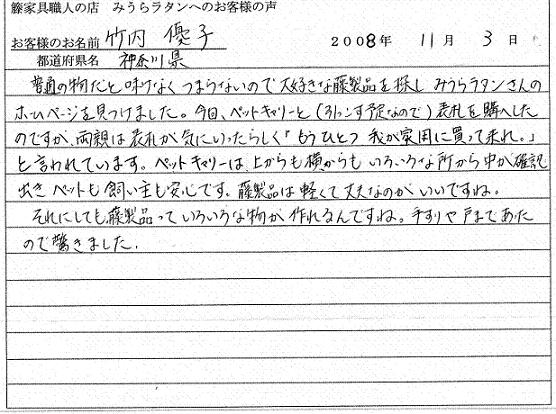 籐家具職人の店 みうらラタンへのお客様の声
お客様のお名前 竹内 優子 2008年 11月 3日
都道府県名 神奈川県
普通の物だと味けなくつまらないので大好きな藤製品を探し みうらラタンさんの
ホームページを見つけました。今回、ペットキャリーと(引っこす予定なので)表札を購入した
のですが、両親は表札が気にいったらしく「もうひとつ 我が家用に買って来れ。」
と言われています。ペットキャリーは、上からも横からもいろいろな所から中が確認
出き ペットも飼い主も安心です。藤製品は軽くて丈夫なのがいいですね。
それにしても藤製品っていろいろな物が作れるんですね。手すりや戸まであった
ので驚きました.